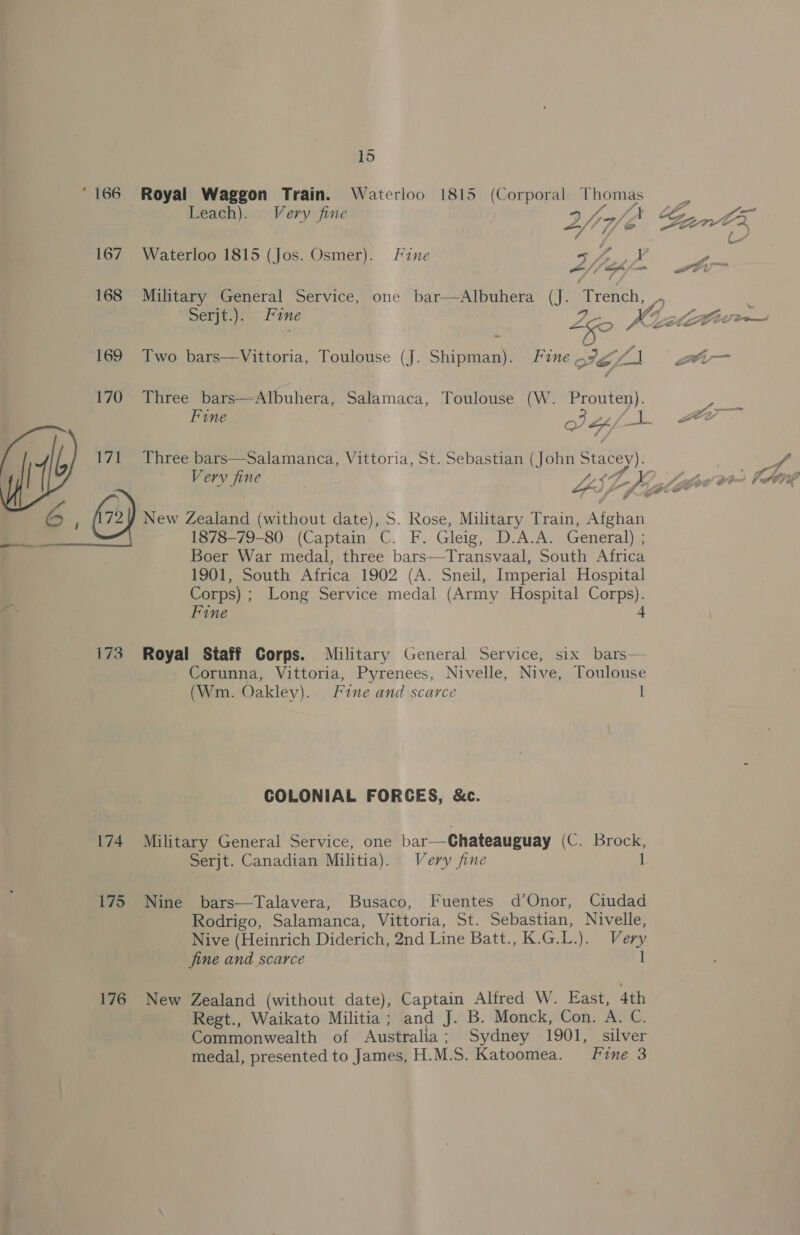 15
166 Royal Waggon Train. Waterloo 1815 (Corporal Thomas
Leach). Very fine
167 Waterloo 1815 (Jos. Osmer). Fine
168 Military General Service, one bar—Albuhera (J. Trench,
Serjt.). Fine
169 Two bars—Vittoria, Toulouse (J. Shipman). Fine
170 Three bars—Albuhera, Salamaca, Toulouse (W. Prouten).
Fine
171 Three bars—Salamanca, Vittoria, St. Sebastian (John Stacey).
Very fine
172 New Zealand (without date), S. Rose, Military Train, Afghan
1878–79–80 (Captain C. F. Gleig, D.A.A. General) ;
Boer War medal, three bars—Transvaal, South Africa
1901, South Africa 1902 (A. Sneil, Imperial Hospital
Corps) ; Long Service medal (Army Hospital Corps).
Fine 4
173 Royal Staff Corps. Military General Service, six bars—
Corunna, Vittoria, Pyrenees, Nivelle, Nive, Toulouse
(Wm. Oakley). Fine and scarce 1
COLONIAL FORCES, &c.
174 Military General Service, one bar—Chateauguay (C. Brock,
Serjt. Canadian Militia). Very fine 1
175 Nine bars—Talavera, Busaco, Fuentes d'Onor, Ciudad
Rodrigo, Salamanca, Vittoria, St. Sebastian, Nivelle,
Nive (Heinrich Diderich, 2nd Line Batt., K.G.L.). Very
fine and scarce 1
176 New Zealand (without date), Captain Alfred W. East, 4th
Regt., Waikato Militia ; and J. B. Monck, Con. A. C.
Commonwealth of Australia ; Sydney 1901, silver
medal, presented to James, H.M.S. Katoomea. Fine 3